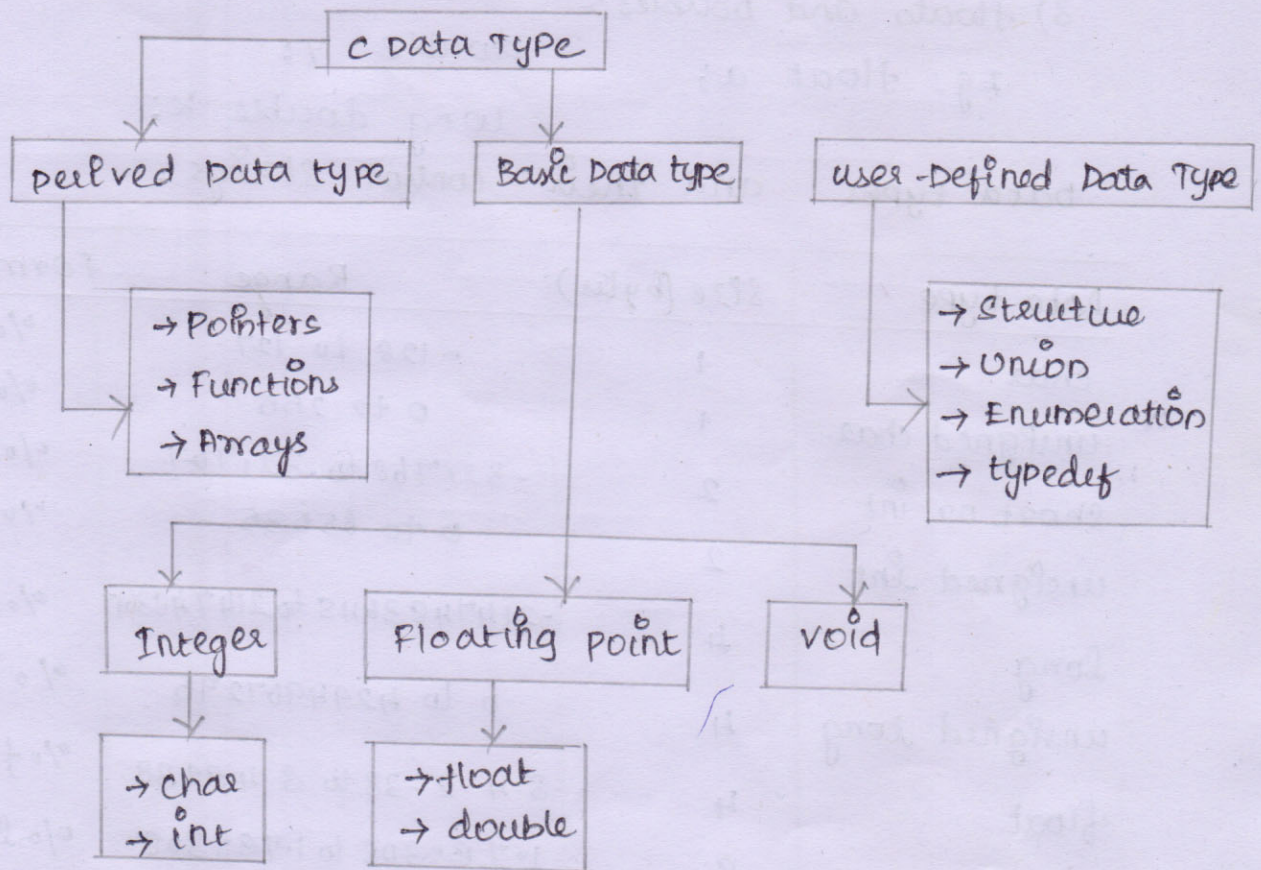 C Data Type
Derived Data type
Basic Data type
User-Defined Data Type
→ Pointers
→ Functions
→ Arrays
→ Structure
→ Union
→ Enumeration
→ typedef
Integer
Floating point
void
→ char
→ int
→ float
→ double